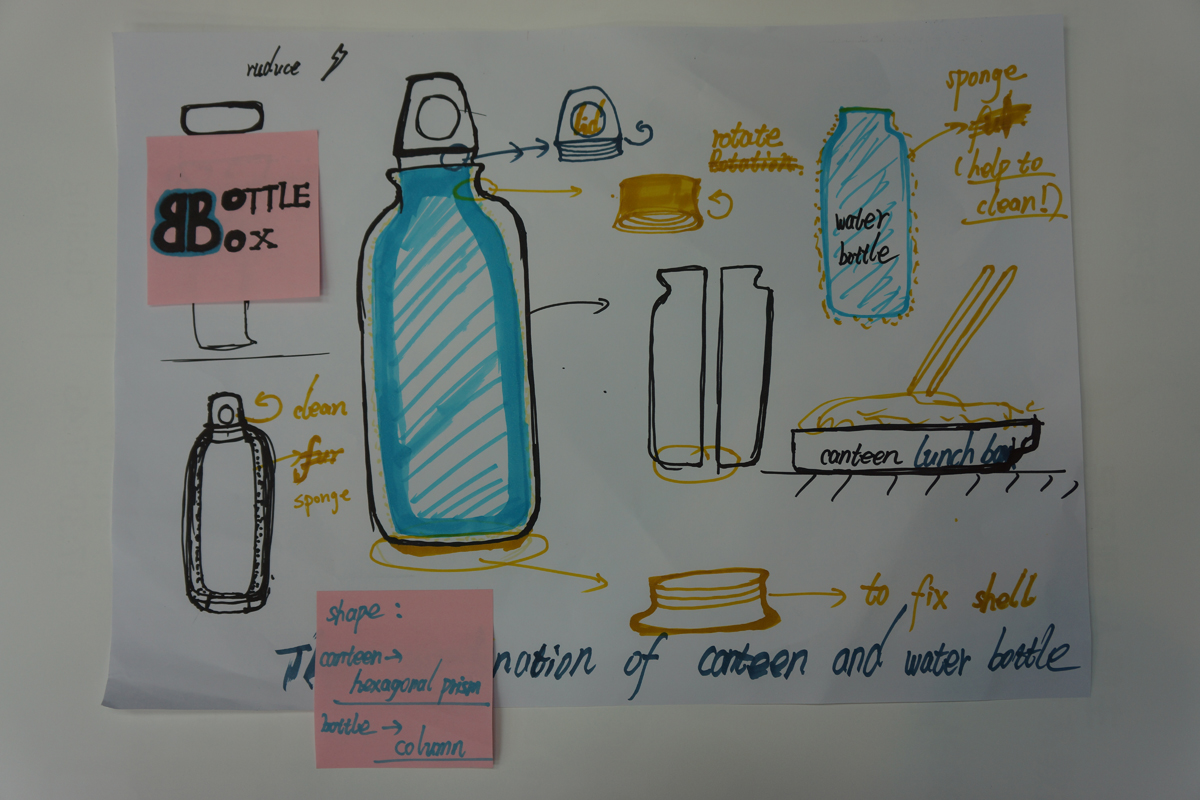 ruduce
BBOTTLE
BOX
lid
rotate
Rotation.
sponge
fur
(help to
clean!)
water
bottle
clean
fur
sponge
canteen lunch box
to fix shell
nation of canteen and water bottle
shape:
canteen→
hexagonal prism
bottle→
column